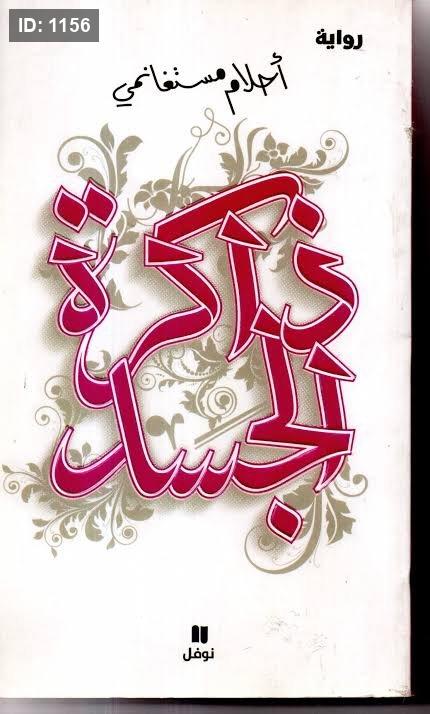 ID: 1156
رواية
أحلام مستغانمي
ذاكرة
الجسد
نوفل